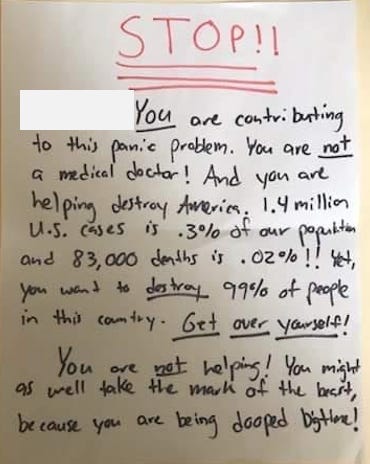 STOP!!
You are contributing
to this panic problem. You are not
a medical doctor! And you are
helping destroy America. 1.4 million
U.S. cases is .3% of our population
and 83,000 deaths is .02%!! Yet,
you want to destroy 99% of people
in this country. Get over yourself!
You are not helping! You might
as well take the mark of the beast,
because you are being dooped bigtime!